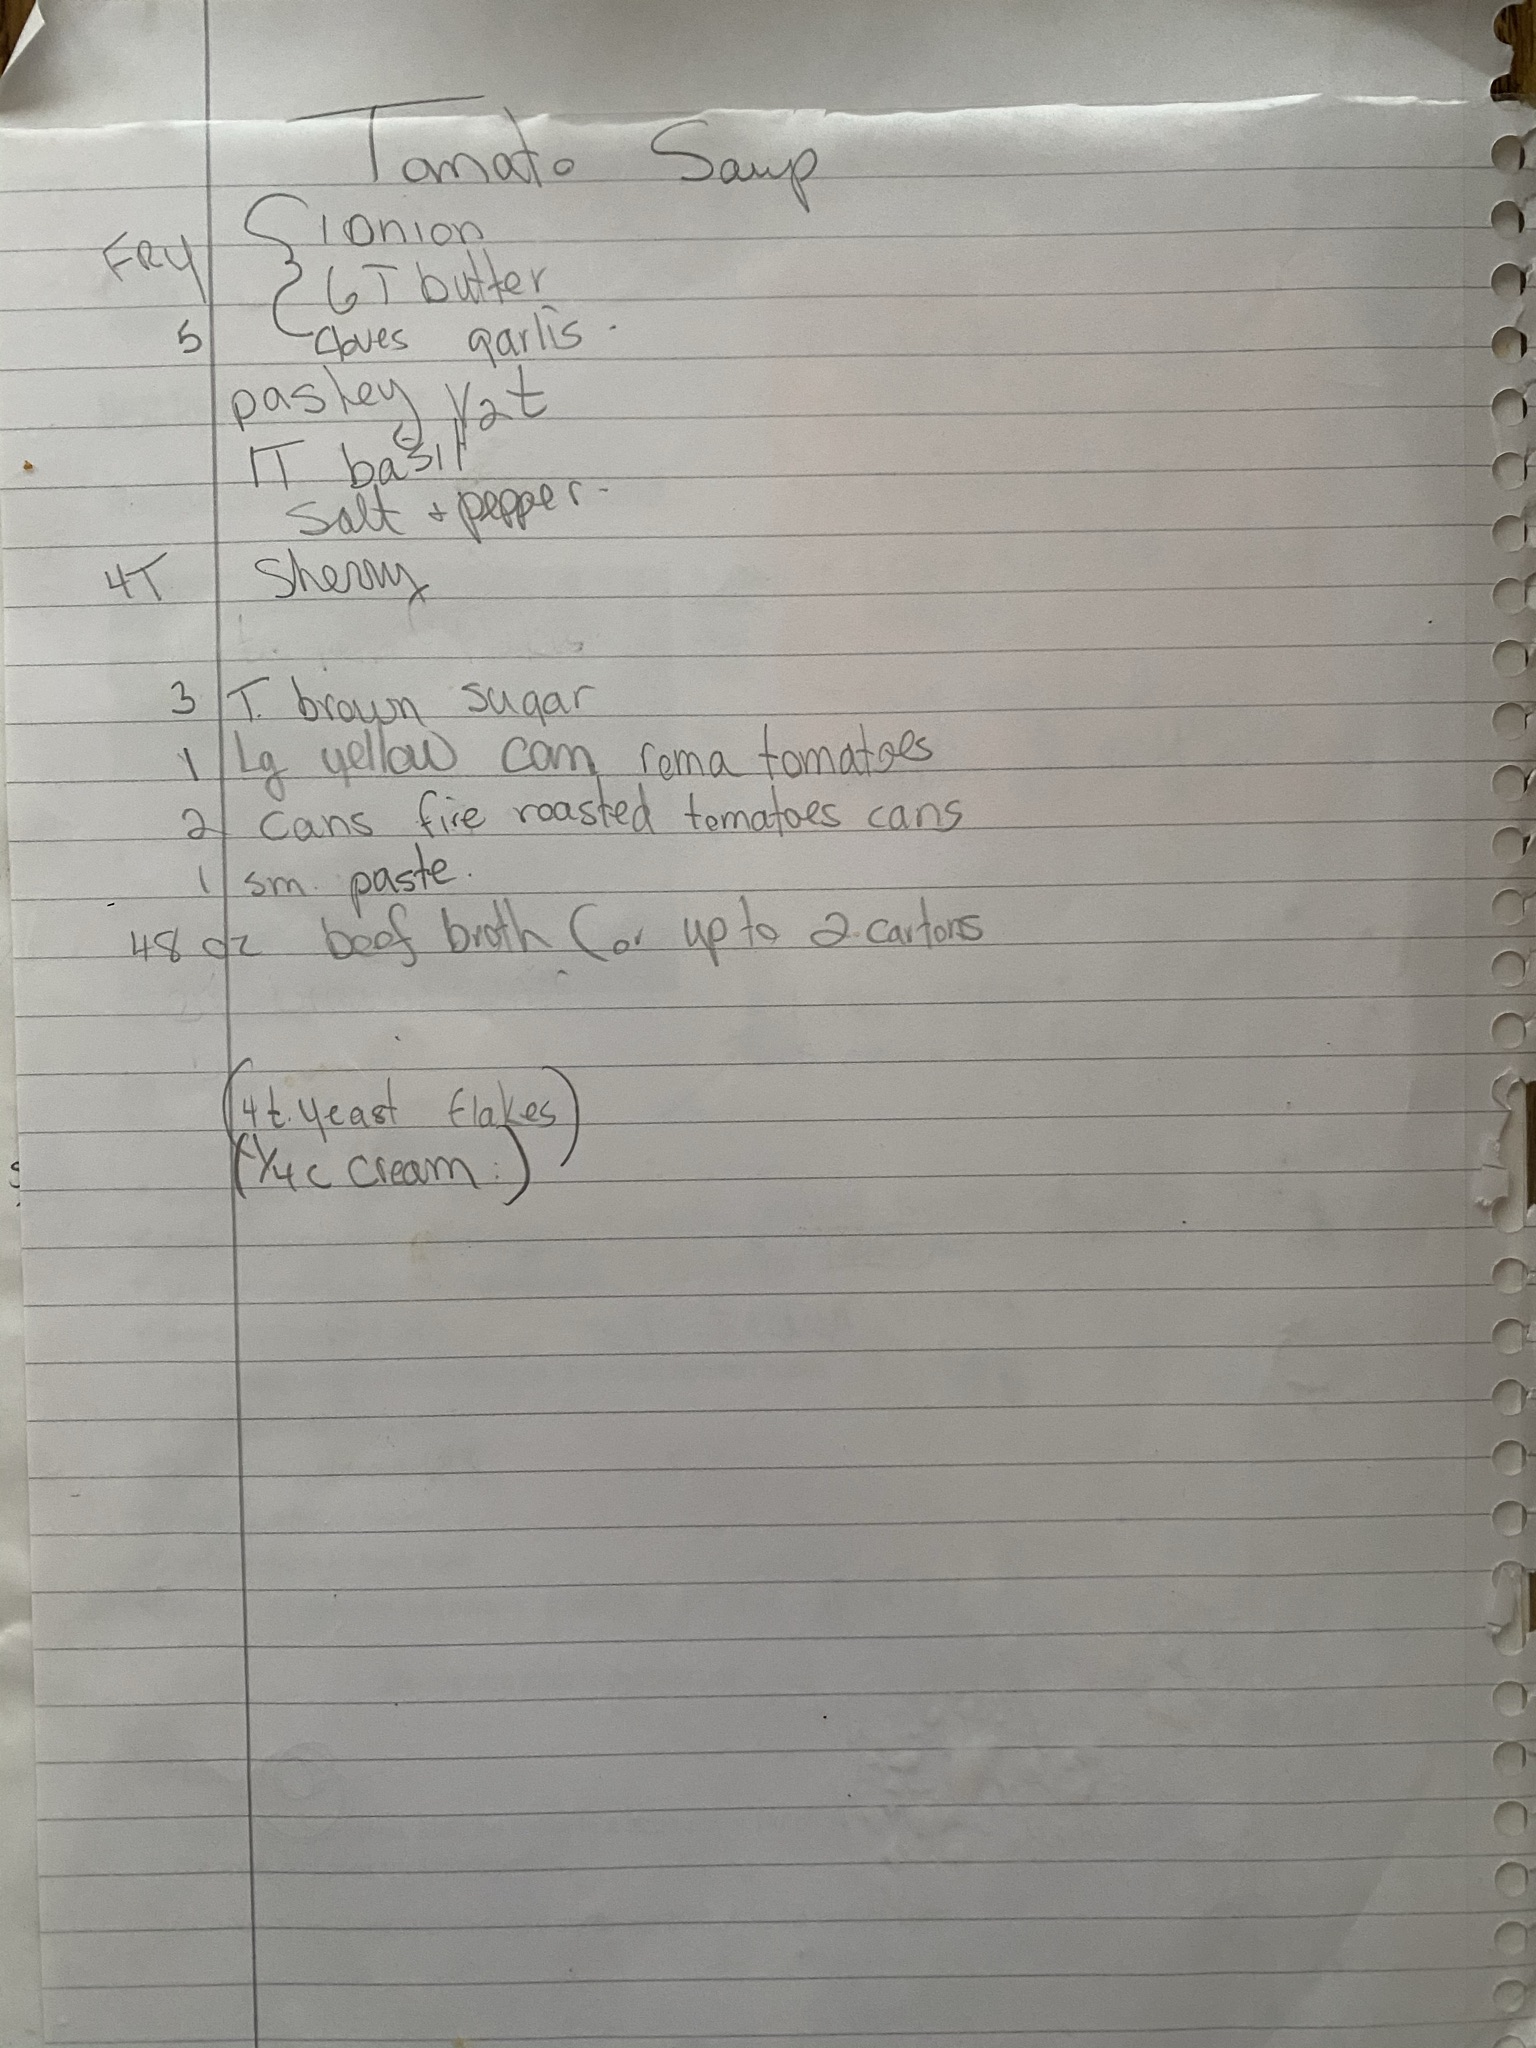 Tomato Soup
FRY { 1 Onion
6 T butter
5 cloves garlis.
pasley 1/2 t
1T basil
Salt + pepper.
4T Sherry
3 T. brown sugar
1 Lg yellow can roma tomatoes
2 cans fire roasted tomatoes cans
1 sm. paste.
48 oz beef broth (or up to 2 cartons
(4 t. yeast flakes)
(1/4 c cream.)